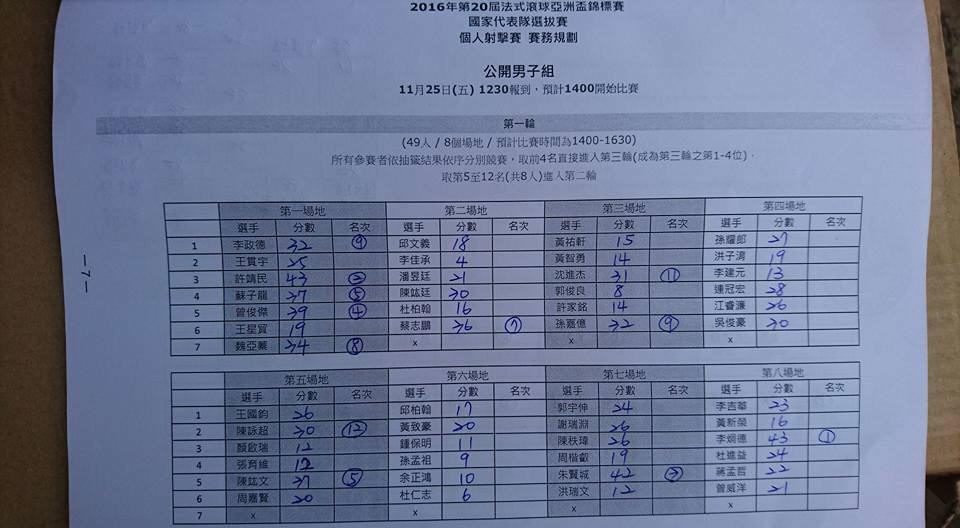 2016年第20屆法式滾球亞洲盃錦標賽
國家代表隊選拔賽
個人射擊賽 賽務規劃
公開男子組
11月25日(五) 1230報到，預計1400開始比賽
第一輪
(49人 / 8個場地 / 預計比賽時間為1400-1630)
所有參賽者依抽籤結果依序分別競賽，取前4名直接進入第三輪(成為第三輪之第1-4位)．
取第5至12名(共8人)進入第二輪
第一場地 第二場地 第三場地 第四場地
選手 分數 名次 選手 分數 名次 選手 分數 名次 選手 分數 名次
1 李政德 32 ⑨ 邱文義 18 黃祐軒 15 孫耀郎 27
2 王貫宇 25 李佳承 4 黃智勇 14 洪子淯 19
3 許靖民 43 潘昱廷 21 沈進杰 31 ⑪ 李建元 13
4 蘇子龍 37 ⑤ 陳竑廷 30 郭俊良 8 連冠宏 28
5 曾俊傑 39 ④ 杜柏翰 16 許家銘 14 江睿濂 26
6 王星貿 19 蔡志鵬 36 ⑦ 孫嘉億 32 ⑨ 吳俊豪 30
7 魏亞蓁 34 ⑧ x x x
第五場地 第六場地 第七場地 第八場地
選手 分數 名次 選手 分數 名次 選手 分數 名次 選手 分數 名次
1 王國鈞 26 邱柏翰 17 郭宇伸 24 李吉華 23
2 陳詠超 30 ⑫ 黃致豪 20 謝瑞淵 26 黃新榮 16
3 顏啟瑞 12 鍾保明 11 陳秩瑋 26 李炯德 43 ①
4 張育維 12 孫孟祖 9 周楷叡 19 杜進益 24
5 陳竑文 37 ⑤ 余正鴻 10 朱賢城 42 ③ 蔣孟哲 22
6 周嘉賢 20 杜仁志 6 洪瑞文 12 曾威洋 21
7 x x x x
－7－